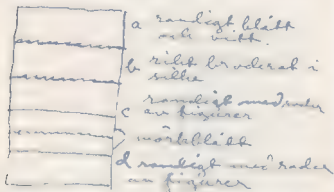 a randigt blått
och vitt.
b rikt broderat i
silke
randigt med rader
c av figurer
mörkblått
d randigt med rader
av figurer